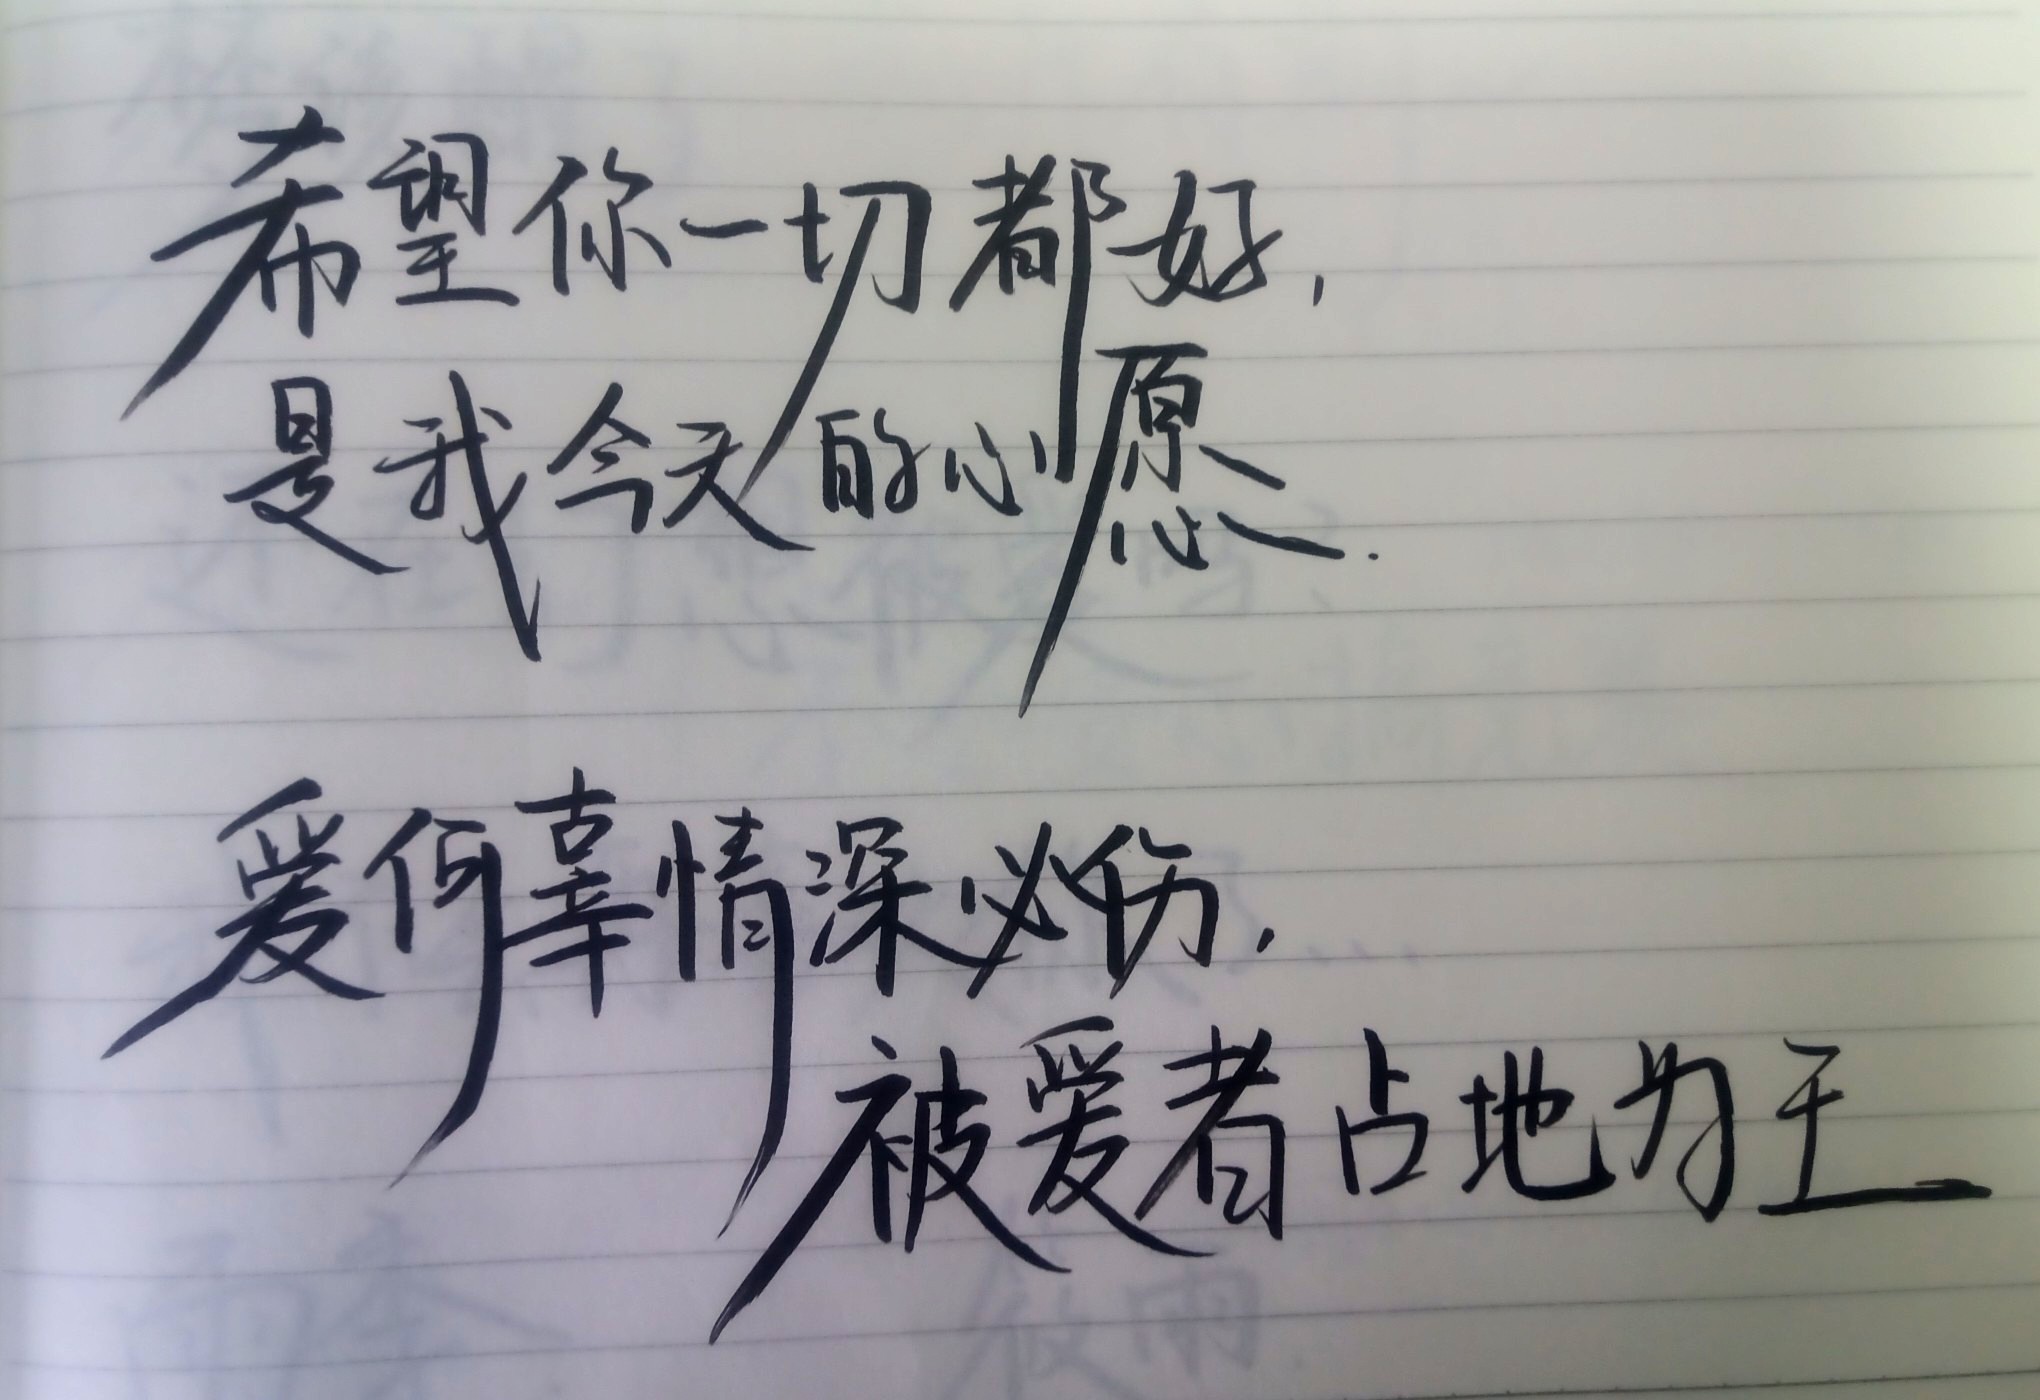 希望你一切都好，
是我今天的心愿.
爱何辜情深必伤，
被爱者占地为王